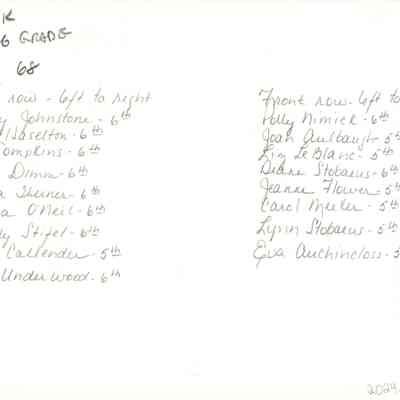 K
6 GRADE
68
row - left to right
y Johnstone - 6th
Haselton - 6th
Tompkins - 6th
Dimm - 6th
a Therner - 6th
a O'Neil - 6th
dy Stifel - 6th
Callender - 5th
Underwood - 6th
Front row - left to
Polly Nimick - 6th
Joan Aulbaugh - 5th
Liz LeBlanc - 5th
Diane Stobaeus - 6th
Jeanne Flower - 5th
Carol Meeker - 5th
Lynn Stobaeus - 5th
Eva Auchincloss - 5
2024.